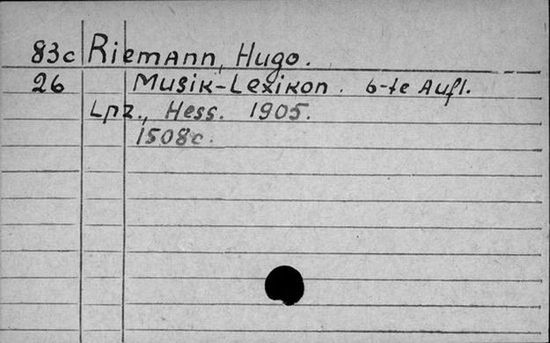 83c Riemann, Hugo.
26 Musik-Lexikon. 6-te Aufl.
Lpz., Hess. 1905.
1508c.